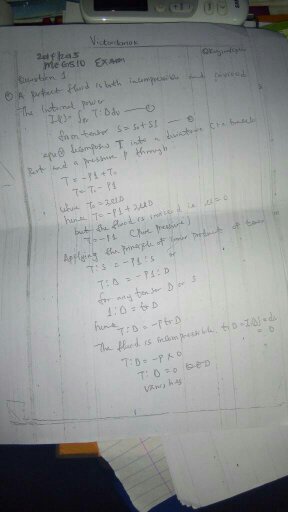 2014/2015
ME 6510 EXAM
Question 1
A perfect fluid is both incompressible and inviscid
The internal power
T:D dv
from tensor S = S0 + S1
decompose T into a
part and a pressure P through
T = -P1 + T0
T = T0 - P1
where T0 = 2μD
hence T = -P1 + 2μD
but the fluid is inviscid i.e μ = 0
T = -P1 (pure pressure)
Applying the principle of inner products of tensor
T:S = -P1:S or
T:D = -P1:D
for any tensor D or S
1:D = trD
hence T:D = -PtrD
The fluid is incompressible trD =
= 0
T:D = -P × 0
T:D = 0
vanishes